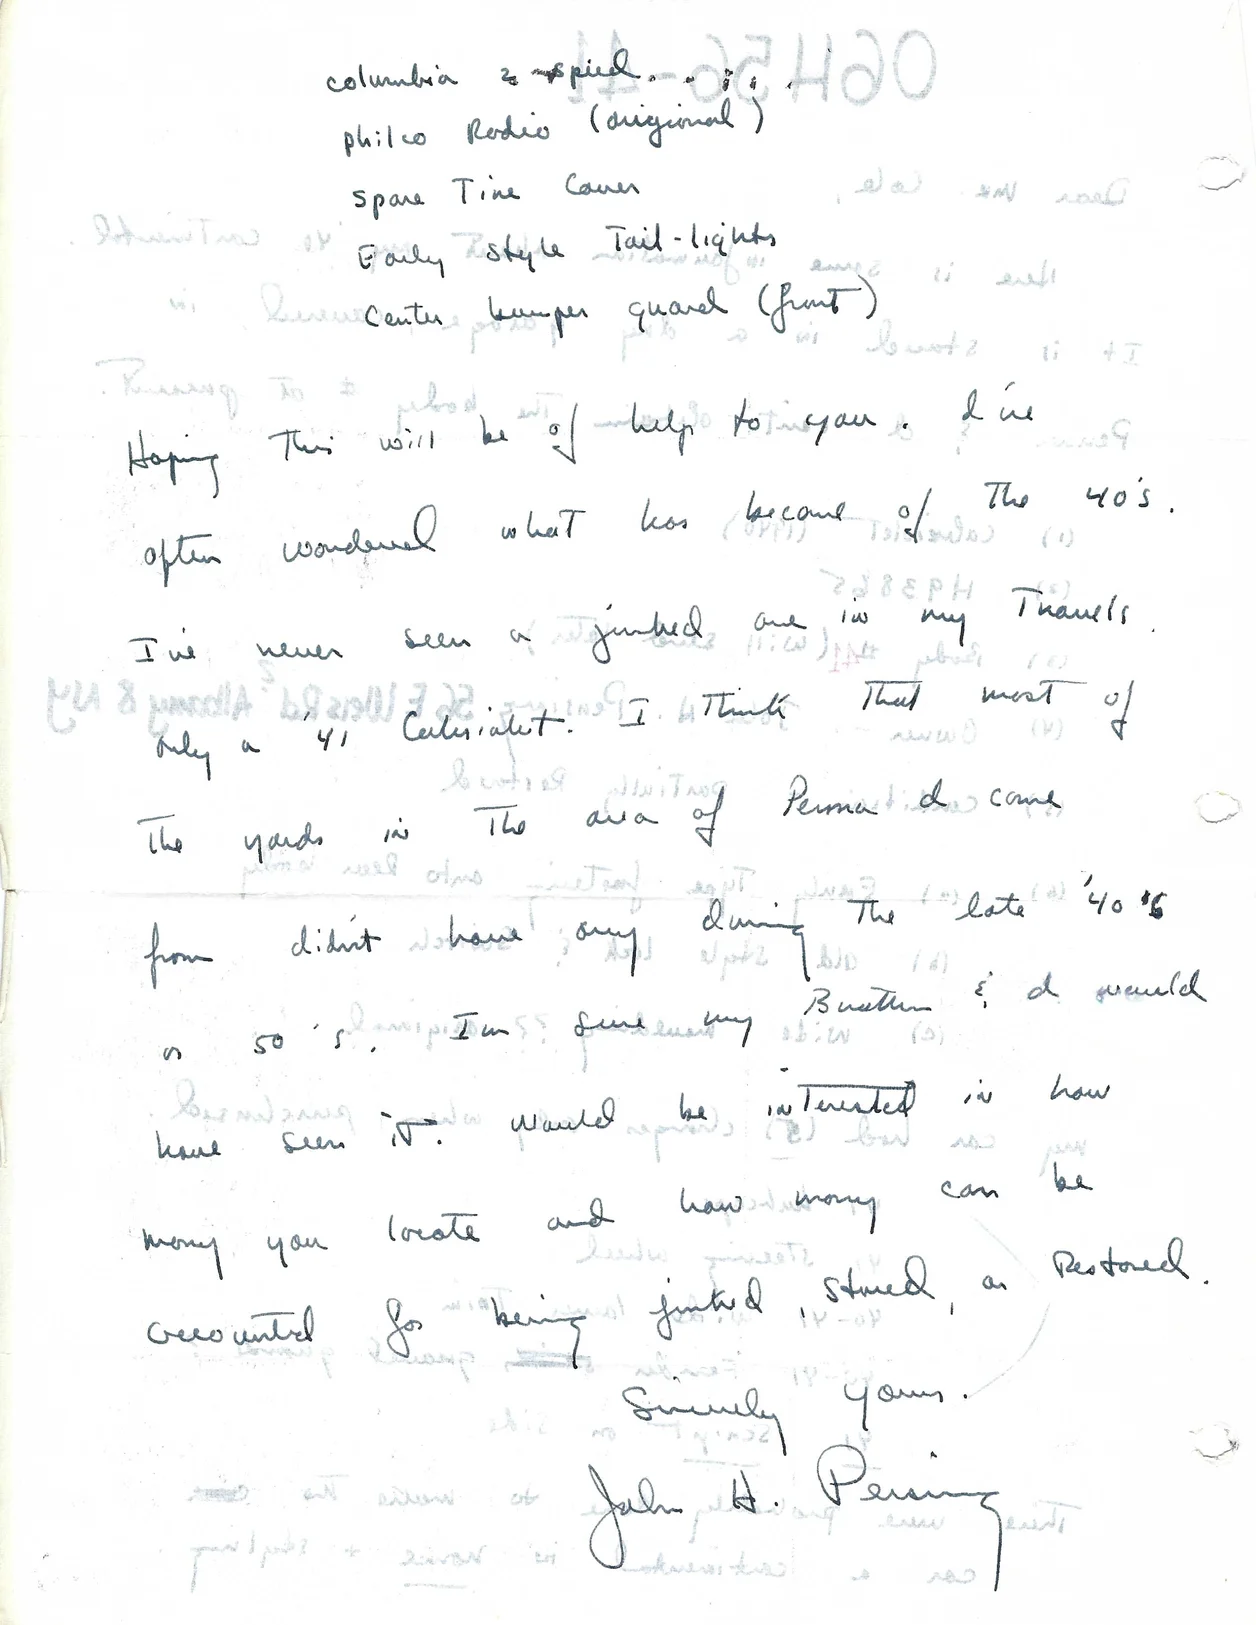 columbia 2 spied. . . . . .
philco Radio (origional)
spare Tire Cover
Early style Tail-lights
center bumper guard (front)
Hoping This will be of help to you. I've
often wondered what has become of The 40's.
I've never seen a junked one in my Travels.
only a '41 Cabriolet. I Think That most of
The yards in The area of Penna I come
from didn't have any during The late '40's
or 50's. I'm sure my Brother & I would
have seen iT. Would be inTerested in how
many you locate and how many can be
accounted for being junked, stored, or Restored.
Sincerely yours.
John H. Persing